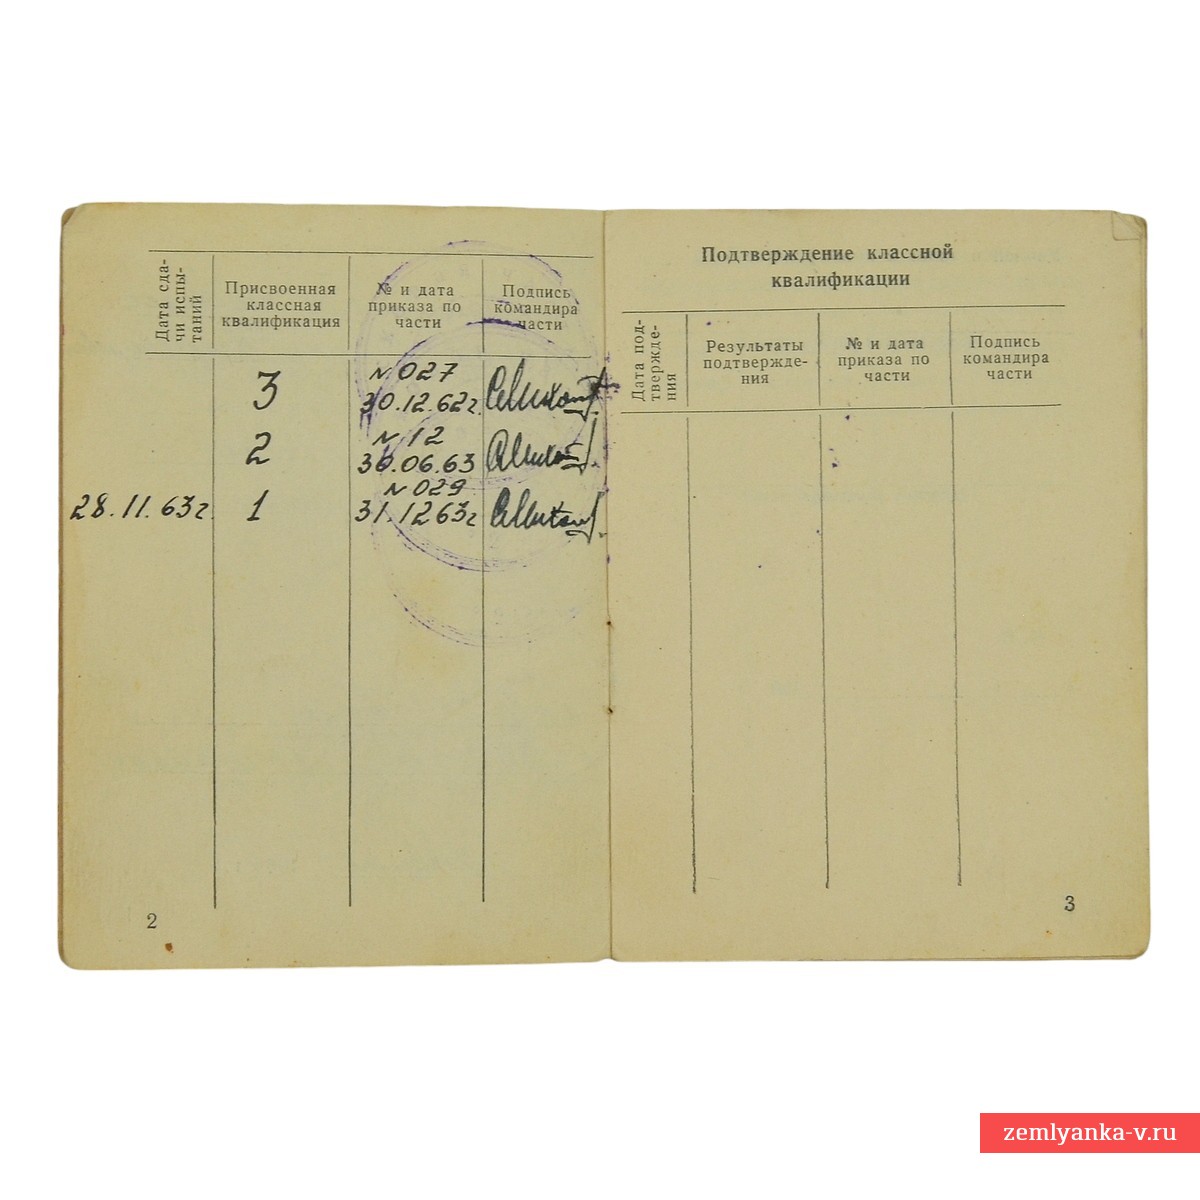 Дата сда-
чи испы-
таний
Присвоенная
классная
квалификация
№ и дата
приказа по
части
Подпись
командира
части
3
N 027
30.12.62г.
2
N 12
30.06.63
28.11.63г.
1
N 029
31.12 63г
2
Подтверждение классной
квалификации
Дата под-
твержде-
ния
Результаты
подтвержде-
ния
№ и дата
приказа по
части
Подпись
командира
части
3
zemlyanka-v.ru